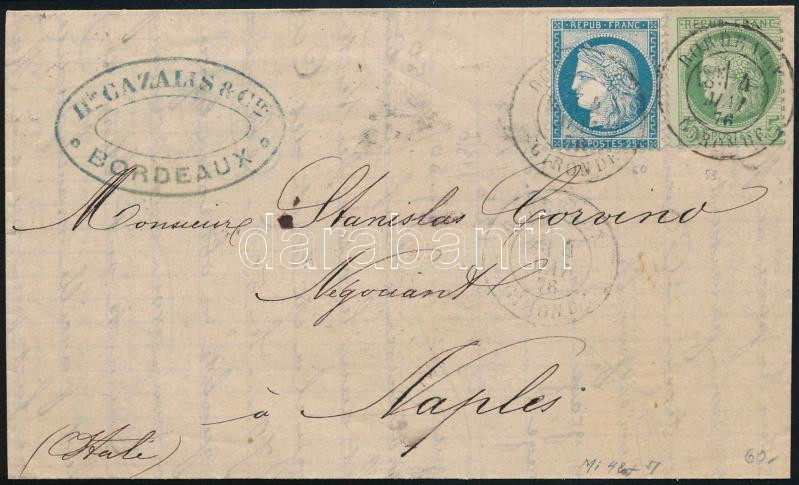 REPUB · FRANC
REPUB · FRANC
BORDEAUX
4
76
GIRONDE
GIRONDE
25 C POSTES 25 C
60
53
CAZALIS & Cie
BORDEAUX
Monsieur Stanislas Corvino
darabanth
Negociant
76
GIRONDE
à Naples
(Italie)
Mi 48
60.-